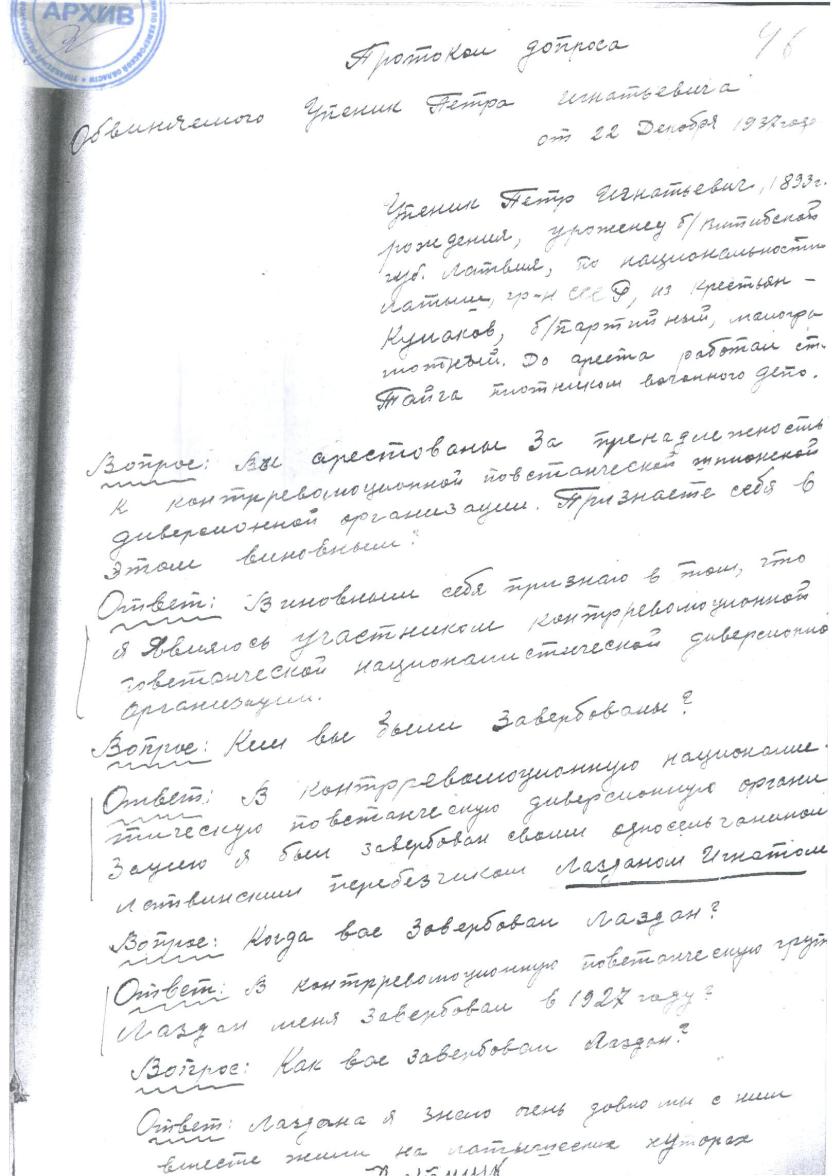 АРХИВ
46
Протокол допроса
Обвиняемого Упеник Петра Игнатьевича
от 22 Декабря 1937 года
Упеник Петр Игнатьевич, 1893 г.
рождения, уроженец б/Витибской
губ. Латвия, по национальности
латыш, гр-н СССР, из крестьян –
Кулаков, б/партийный, малогра
мотный. До ареста работал ст.
Тайга плотником вагонного депо.
Вопрос: Вы арестованы За пренадлежность
к контрреволюционной повстанческой шпионской
диверсионной организации. Признаете себя в
этом виновным?
Ответ: Виновным себя признаю в том, что
я Являюсь участником контрреволюционной
повстанческой националистической диверсионно
организации.
Вопрос: Кем вы были Завербованы?
Ответ: В контрреволюционную националис
тическую повстанческую диверсионную органи
зацию я был завербован своим односельчанином
латвинским перебезчиком Лазданом Игнатом
Вопрос: Когда вас Завербовал Лаздан?
Ответ: В контрреволюционную повстанческую груп
Лаздан меня Завербовал в 1927 году?
Вопрос: Как вас завербовал Лаздан?
Ответ: Лаздана я знаю очень давно мы с ним
вместе жили на латышских хуторах